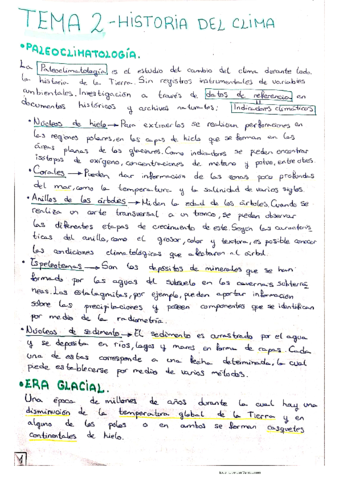 TEMA 2-HISTORIA DEL CLIMA
•PALEOCLIMATOLOGÍA.
La Paleoclimatología es el estudio del cambio del clima durante toda
la historia de la Tierra. Sin registros instrumentales de variables
ambientales. Investigación a través de datos de referencia en
documentos históricos y archivos naturales: Indicadores climáticos
• Núcleos de hielo → Para extraerlos se realizan perforaciones en
las regiones polares, en las capas de hielo que se forman en las
áreas planas de los glaciares. Como indicadores se pueden encontrar
isótopos de oxígeno, concentraciones de metano y polvo, entre otros.
• Corales → Pueden dar información de las zonas poco profundas
del mar, como la temperatura y la salinidad de varios siglos.
• Anillos de los árboles → Miden la edad de los árboles. Cuando se
realiza un corte transversal a un tronco, se pueden observar
las diferentes etapas de crecimiento de este. Según las caracterís
ticas del anillo, como el grosor, color y textura, es posible conocer
las condiciones climatológicas que afectaron al árbol.
• Espeleotemas → Son los depósitos de minerales que se han
formado por las aguas del subsuelo en las cavernas subterrá
neas. Las estalagmitas, por ejemplo, pueden aportar información
sobre las precipitaciones y poseen componentes que se identifican
por medio de la radiometría.
• Núcleos de sedimento → El sedimento es arrastrado por el agua
y se deposita en ríos, lagos y mares en forma de capas. Cada
una de estas corresponde a una fecha determinada, la cual
puede establecerse por medio de varios métodos.
•ERA GLACIAL.
Una época de millones de años durante la cual hay una
disminución de la temperatura global de la Tierra y en
alguno de los polos o en ambos se forman casquetes
continentales de hielo.
1